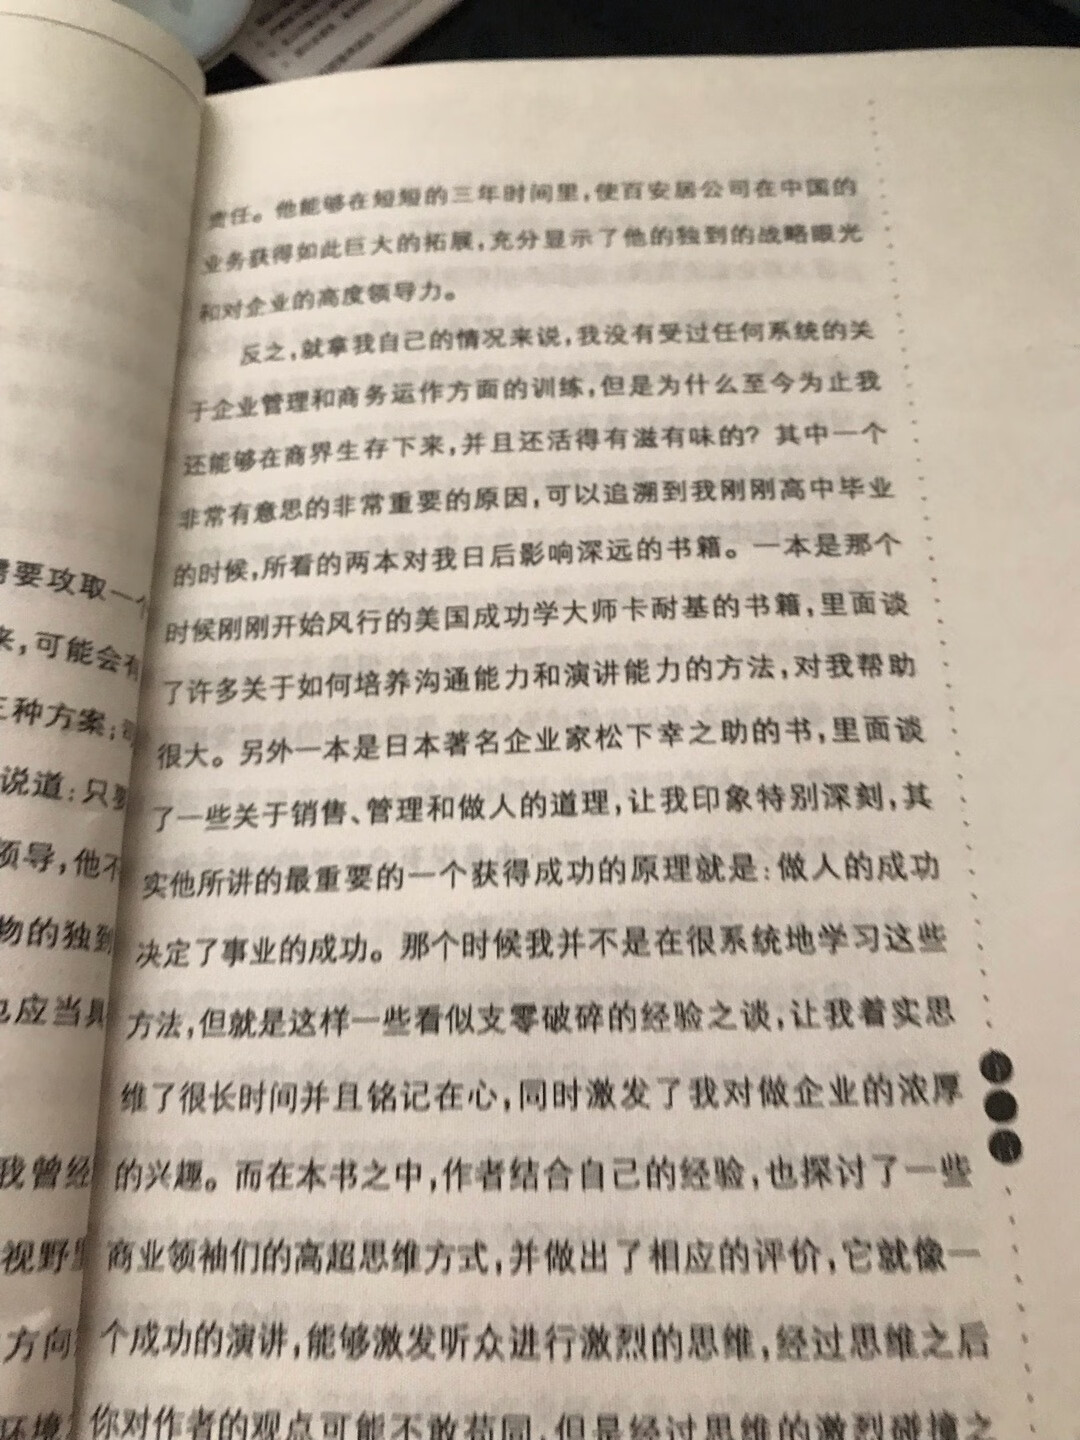 需要攻取一个
来,可能会有
三种方案;
说道:只要
领导,他不
物的独到
也应当具
我曾经
视野
方向
环境
责任。他能够在短短的三年时间里,使百安居公司在中国的
业务获得如此巨大的拓展,充分显示了他的独到的战略眼光
和对企业的高度领导力。
反之,就拿我自己的情况来说,我没有受过任何系统的关
于企业管理和商务运作方面的训练,但是为什么至今为止我
还能够在商界生存下来,并且还活得有滋有味的?其中一个
非常有意思的非常重要的原因,可以追溯到我刚刚高中毕业
的时候,所看的两本对我日后影响深远的书籍。一本是那个
时候刚刚开始风行的美国成功学大师卡耐基的书籍,里面谈
了许多关于如何培养沟通能力和演讲能力的方法,对我帮助
很大。另外一本是日本著名企业家松下幸之助的书,里面谈
了一些关于销售、管理和做人的道理,让我印象特别深刻,其
实他所讲的最重要的一个获得成功的原理就是:做人的成功
决定了事业的成功。那个时候我并不是在很系统地学习这些
方法,但就是这样一些看似支零破碎的经验之谈,让我着实思
维了很长时间并且铭记在心,同时激发了我对做企业的浓厚
的兴趣。而在本书之中,作者结合自己的经验,也探讨了一些
商业领袖们的高超思维方式,并做出了相应的评价,它就像一
个成功的演讲,能够激发听众进行激烈的思维,经过思维之后
你对作者的观点可能不敢苟同,但是经过思维的激烈碰撞之